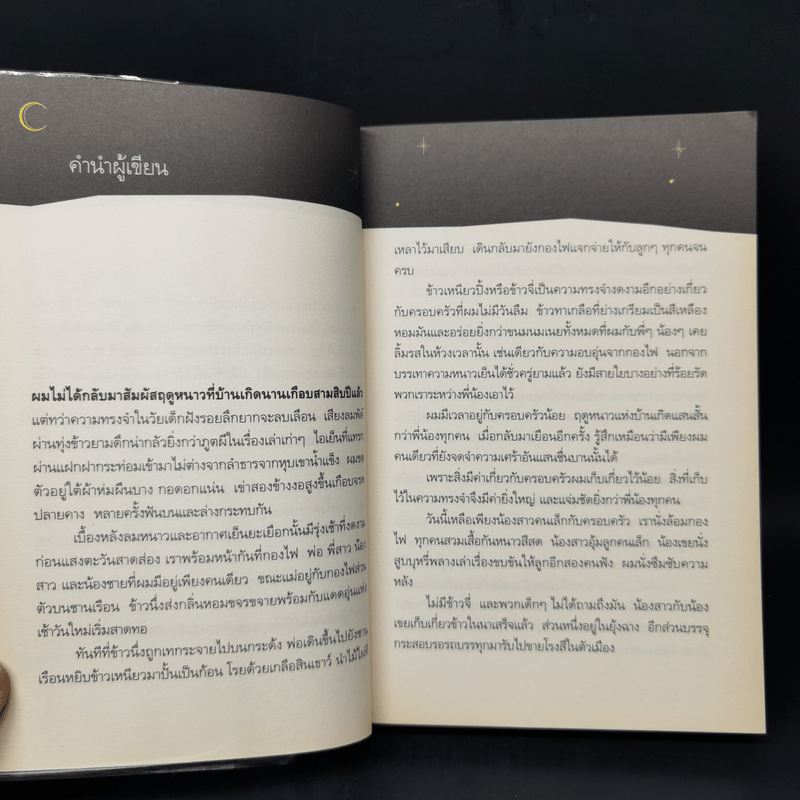 คำนำผู้เขียน
ผมไม่ได้กลับมาสัมผัสฤดูหนาวที่บ้านเกิดนานเกือบสามสิบปีแล้ว
แต่ทว่าความทรงจำในวัยเด็กฝังรอยลึกยากจะลบเลือน เสียงลมพัด
ผ่านทุ่งข้าวยามดึกน่ากลัวยิ่งกว่าภูตผีในเรื่องเล่าเก่าๆ ไอเย็นที่แทรก
ผ่านแฝกฝากระท่อมเข้ามาไม่ต่างจากลำธารจากหุบเขาน้ำแข็ง ผมขด
ตัวอยู่ใต้ผ้าห่มผืนบาง กอดอกแน่น เข่าสองข้างงอสูงขึ้นเกือบจรด
ปลายคาง หลายครั้งฟันบนและล่างกระทบกัน
เบื้องหลังลมหนาวและอากาศเย็นยะเยือกนั้นมีรุ่งเช้าที่งดงาม
ก่อนแสงตะวันสาดส่อง เราพร้อมหน้ากันที่กองไฟ พ่อ พี่สาว น้อง
สาว และน้องชายที่ผมมีอยู่เพียงคนเดียว ขณะแม่อยู่กับกองไฟส่วน
ตัวบนชานเรือน ข้าวนึ่งส่งกลิ่นหอมขจรขจายพร้อมกับแดดอุ่นแห่ง
เช้าวันใหม่เริ่มสาดทอ
ทันทีที่ข้าวนึ่งถูกเทกระจายไปบนกระด้ง พ่อเดินขึ้นไปยังชาน
เรือนหยิบข้าวเหนียวมาปั้นเป็นก้อน โรยด้วยเกลือสินเธาว์ นำไม้ไผ่ที่
เหลาไว้มาเสียบ เดินกลับมายังกองไฟแจกจ่ายให้กับลูกๆ ทุกคนจน
ครบ
ข้าวเหนียวปิ้งหรือข้าวจี่เป็นความทรงจำงดงามอีกอย่างเกี่ยว
กับครอบครัวที่ผมไม่มีวันลืม ข้าวทาเกลือที่ย่างเกรียมเป็นสีเหลือง
หอมมันและอร่อยยิ่งกว่าขนมนมเนยทั้งหมดที่ผมกับพี่ๆ น้องๆ เคย
ลิ้มรสในห้วงเวลานั้น เช่นเดียวกับความอบอุ่นจากกองไฟ นอกจาก
บรรเทาความหนาวเย็นได้ชั่วครู่ยามแล้ว ยังมีสายใยบางอย่างที่ร้อยรัด
พวกเราระหว่างพี่น้องเอาไว้
ผมมีเวลาอยู่กับครอบครัวน้อย ฤดูหนาวแห่งบ้านเกิดแสนสั้น
กว่าพี่น้องทุกคน เมื่อกลับมาเยือนอีกครั้ง รู้สึกเหมือนว่ามีเพียงผม
คนเดียวที่ยังจดจำความเศร้าอันแสนชื่นบานนั้นได้
เพราะสิ่งมีค่าเกี่ยวกับครอบครัวผมเก็บเกี่ยวไว้น้อย สิ่งที่เก็บ
ไว้ในความทรงจำจึงมีค่ายิ่งใหญ่ และแจ่มชัดยิ่งกว่าพี่น้องทุกคน
วันนี้เหลือเพียงน้องสาวคนเล็กกับครอบครัว เรานั่งล้อมกอง
ไฟ ทุกคนสวมเสื้อกันหนาวสีสด น้องสาวอุ้มลูกคนเล็ก น้องเขยนั่ง
สูบบุหรี่พลางเล่าเรื่องขบขันให้ลูกอีกสองคนฟัง ผมนั่งซึมซับความ
หลัง
ไม่มีข้าวจี่ และพวกเด็กๆ ไม่ได้ถามถึงมัน น้องสาวกับน้อง
เขยเก็บเกี่ยวข้าวในนาเสร็จแล้ว ส่วนหนึ่งอยู่ในยุ้งฉาง อีกส่วนบรรจุ
กระสอบรอรถบรรทุกมารับไปขายโรงสีในตัวเมือง